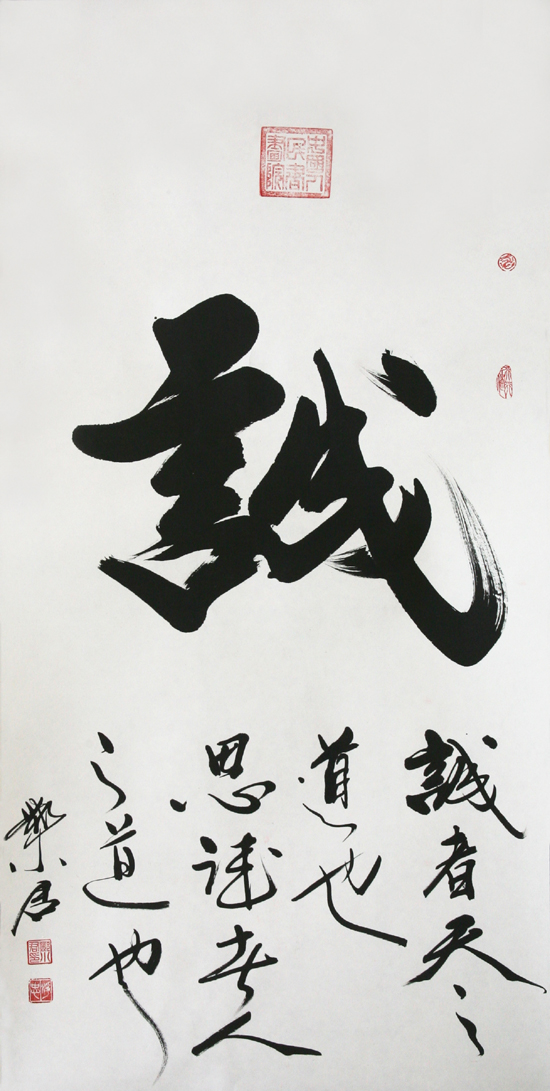 誠
誠者天之
道也
思誠者人
之道也